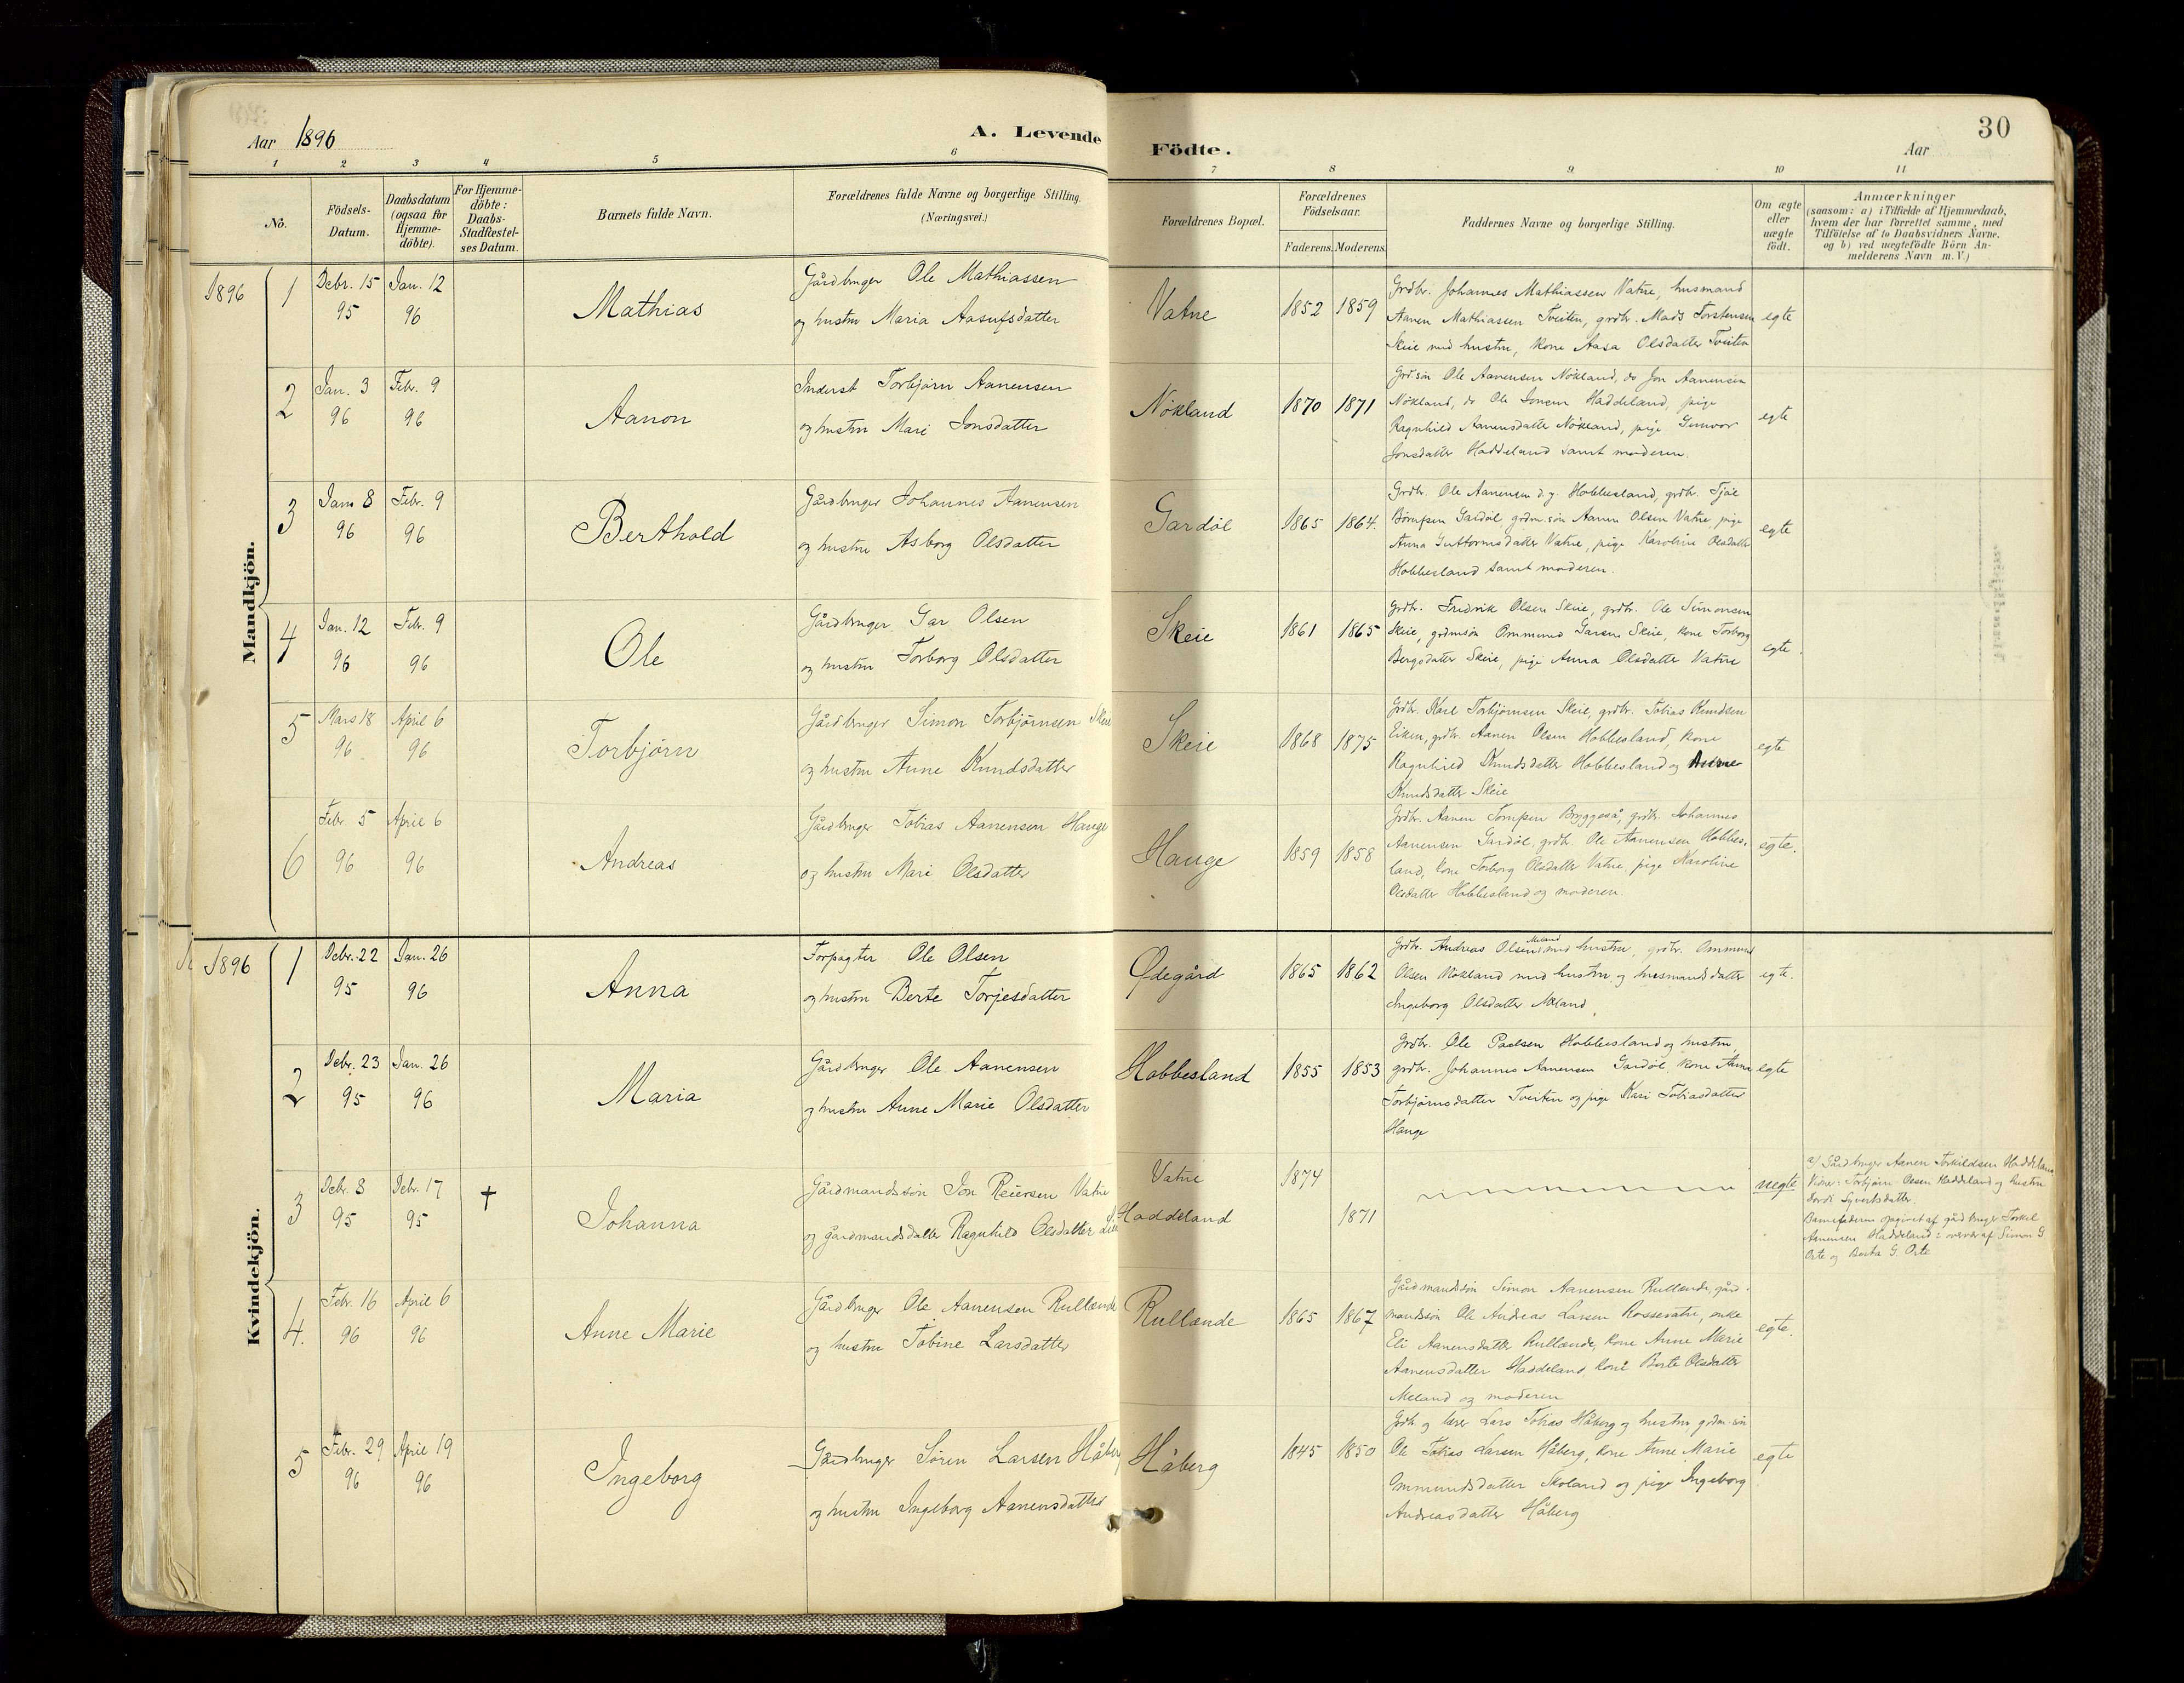 Aar 1896
A. Levende
Födte.
Aar
30
1 2 3 4 5 6 7 8 9 10 11
No.
Födsels-
Datum.
Daabsdatum
(ogsaa for
Hjemme-
döbte).
For Hjemme-
döbte:
Daabs-
Stadfæstel-
ses Datum.
Barnets fulde Navn.
Forældrenes fulde Navne og borgerlige Stilling.
(Næringsvei.)
Forældrenes Bopæl.
Forældrenes
Födselsaar.
Faderens. Moderens.
Faddernes Navne og borgerlige Stilling.
Om ægte
eller
uægte
födt.
Anmærkninger
(saasom: a) i Tilfælde af Hjemmedaab,
hvem der har forrettet samme, med
Tilföielse af to Daabsvidners Navne.
og b) ved uægtefödte Börn An-
melderens Navn m. V.)
Mandkjön.
1896 1
Debr. 15
95
Jan. 12
96
Mathias
Gårdbruger Ole Mathiassen
og hustru Maria Aasufsdatter
Vatne
1852 1859
Grdbr. Johannes Mathiassen Vatne, husmand
Aanen Mathiassen Tveiten, grdbr. Mads Torstensen
Skeie med hustru, kone Aasa Olsdatter Tveiten
egte
2
Jan. 3
96
Febr. 9
96
Aanon
Inderst Torbjørn Aanensen
og hustru Mari Jonsdatter
Nökland
1870 1871
Grdsøn Ole Aanensen Nökland, do Jon Aanensen
Nökland, do Ole Jonsen Haddeland, pige
Ragnhild Aanensdatter Nökland, pige Gunvor
Jonsdatter Haddeland samt moderen.
egte
3
Janr 8
96
Febr. 9
96
Berthold
Gårdbruger Johannes Aanensen
og hustru Asborg Olsdatter
Gardøl
1865 1864.
Grdbr. Ole Aanensen d.y. Hobbesland, grdbr. Tjöl
Gardöl, grdm.søn Aanen Olsen Vatne, pige
Anna Guttormsdatter Vatne, pige Karoline Olsdatter
Hobbesland samt moderen.
egte
4
Jan. 12
96
Febr. 9
96
Ole
Gårdbruger Gar Olsen
og hustru Torborg Olsdatter
Skeie
1861 1865
grdbr. Fredrik Olsen Skeie, grdbr. Ole Simonsen
Skeie, grdmsøn Ommund Garsen Skeie, kone Torborg
Bergsdatter Skeie, pige Anna Olsdatter Vatne
egte.
5
Mars 18
96
April 6
96
Torbjörn
Gårdbruger Simon Torbjörnsen Skeie
og hustru Anne Knudsdatter
Skeie
1868 1875
Grdbr. Karl Torbjørnsen Skeie, grdbr. Tobias Knudsen
Eiken, grdbr. Aanen Olsen Hobbesland, kone
Ragnhild Knudsdatter Hobbesland og Anne
Knudsdatter Skeie
egte
6
Febr. 5
96
April 6
96
Andreas
Gårdbruger Tobias Aanensen Hauge
og hustru Mari Olsdatter
Hauge
1859 1858
Grdbr. Aanen Bryggeså, grdbr. Johannes
Aanensen Gardöl, grdb. Ole Aanensen Hobbes-
land, kone Torborg Olsdatter Vatne, pige Karoline
Olsdatter Hobbesland og moderen.
egte.
Kvindekjön.
1896 1
Debr. 22
95
Jan. 26
96
Anna
Forpagter Ole Olsen
og hustru Berte Torjesdatter
Ødegård
1865 1862
Grdbr. Andreas Olsen Meland med hustru, grdbr. Ommund
Olsen Nökland med hustru og husmandsdatter
Ingeborg Olsdatter Meland.
egte.
2
Debr. 23
95
Jan. 26
96
Maria
Gårdbruger Ole Aanensen
og hustru Anne Marie Olsdatter
Hobbesland
1855 1853
Grdbr. Ole Paulsen Hobbesland og hustru,
grdbr. Johannes Aanensen Gardöl, kone Anne
Torbjørnsdatter Tveiten og pige Kari Tobiasdatter
Hauge
egte
3
Debr. 8
95
Debr. 17
95
†
Johanna
Gårdmandssön Jon Reiersen Vatne
og gårdmandsdatter Ragnhild Olsdatter
Vatne
Haddeland
1874
1871
uegte
a) Gårdbruger Aanen Torkildsen Haddeland
Vidne: Torbjørn Olsen Haddeland og hustru
Syvertsdatter.
Barnefaderen opgivet af gårdbruger Torkel
Aanensen Haddeland i overvær af Simon G.
Orte og Berta G. Orte
4.
Febr. 16
96
April 6
96
Anne Marie
Gårdbruger Ole Aanensen Rullende
og hustru Tobine Larsdatter
Rullende
1865 1867
Gårdmandssön Simon Aanensen Rullende, gård-
mandssön Ole Andreas Larsen Rossevatn, enke
Eli Aanensdatter Rullende, kone Anne Marie
Aanensdatter Haddeland, kone Berte Olsdatter
Meland og moderen
egte.
5
Febr. 29
96
April 19
96
Ingeborg
Gårdbruger Sören Larsen Håberg
og hustru Ingeborg Aanensdatter
Håberg
1845 1850
Grdb. og lærer Lars Tobias Håberg og hustru, grdm.sön
Ole Tobias Larsen Håberg, kone Anne Marie
Ommundsdatter Skoland og pige Ingeborg
Andreasdatter Håberg
egte